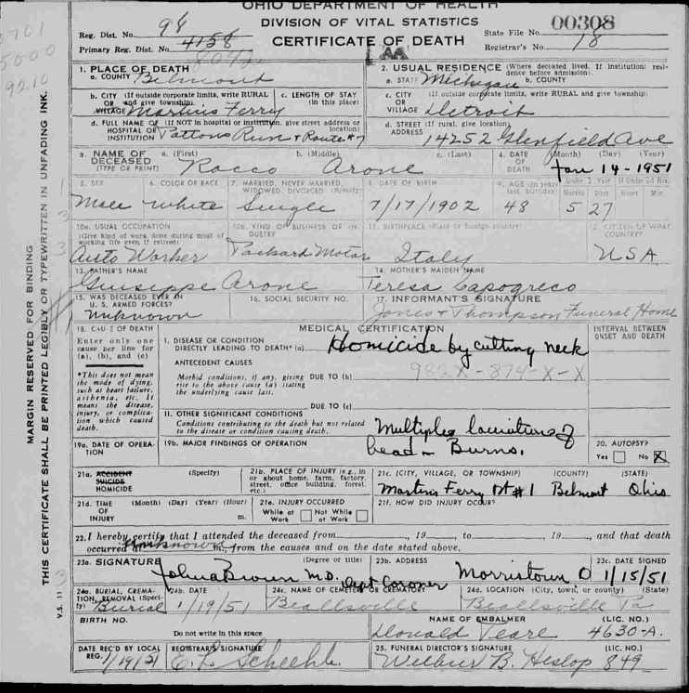 OHIO DEPARTMENT OF HEALTH
DIVISION OF VITAL STATISTICS
CERTIFICATE OF DEATH
Reg. Dist. No. 94
Primary Reg. Dist. No. 4158
State File No. 00308
Registrar's No. 18
MARGIN RESERVED FOR BINDING
THIS CERTIFICATE SHALL BE PRINTED LEGIBLY OR TYPEWRITTEN IN UNFADING INK.
V.S. 11
1. PLACE OF DEATH
a. COUNTY Belmont
2. USUAL RESIDENCE (Where deceased lived. If institution: residence before admission).
a. STATE Michigan b. COUNTY
b. CITY (If outside corporate limits, write RURAL and give township)
VILLAGE Martins Ferry
c. LENGTH OF STAY (in this place)
c. CITY (If outside corporate limits, write RURAL and give township)
OR VILLAGE Detroit
d. FULL NAME OF (If NOT in hospital or institution, give street address or location)
HOSPITAL OR INSTITUTION Pattons Run & Route #7
d. STREET (If rural, give location)
ADDRESS 14252 Glenfield Ave
3. NAME OF DECEASED (TYPE OR PRINT)
a. (First) b. (Middle) c. (Last)
Rocco Arone
4. DATE OF DEATH (Month) (Day) (Year)
Jan 14-1951
5. SEX
Male
6. COLOR OR RACE
White
7. MARRIED, NEVER MARRIED, WIDOWED, DIVORCED
Single
8. DATE OF BIRTH
7/17/1902
9. AGE (In years last birthday)
48 5 27
10a. USUAL OCCUPATION (Give kind of work done during most of working life even if retired)
Auto Worker
10b. KIND OF BUSINESS OR INDUSTRY
Packard Motor
11. BIRTHPLACE (State or foreign country)
Italy
12. CITIZEN OF WHAT COUNTRY?
USA
13. FATHER'S NAME
Guiseppe Arone
14. MOTHER'S MAIDEN NAME
Teresa Capogreco
15. WAS DECEASED EVER IN U. S. ARMED FORCES?
Unknown
16. SOCIAL SECURITY NO.
17. INFORMANT'S SIGNATURE
Jones & Thompson Funeral Home
18. CAUSE OF DEATH
Enter only one cause per line for (a), (b), and (c)
*This does not mean the mode of dying, such as heart failure, asthenia, etc. It means the disease, injury, or complication which caused death.
MEDICAL CERTIFICATION
INTERVAL BETWEEN ONSET AND DEATH
I. DISEASE OR CONDITION DIRECTLY LEADING TO DEATH* (a) Homicide by cutting neck
ANTECEDENT CAUSES
Morbid conditions, if any, giving rise to the above cause (a) stating the underlying cause last.
DUE TO (b)
DUE TO (c)
11. OTHER SIGNIFICANT CONDITIONS
Conditions contributing to the death but not related to the disease or condition causing death.
Multiple lacerations of head - Burns.
19a. DATE OF OPERATION
19b. MAJOR FINDINGS OF OPERATION
20. AUTOPSY?
Yes No X
21a. ACCIDENT SUICIDE HOMICIDE (Specify)
21b. PLACE OF INJURY (e.g., in or about home, farm, factory, street, office building, forest, etc.)
21c. (CITY, VILLAGE, OR TOWNSHIP) (COUNTY) (STATE)
Martins Ferry Rt #1 Belmont Ohio
21d. TIME OF INJURY (Month) (Day) (Year) (Hour) m.
21e. INJURY OCCURRED
While at Work Not While at Work
21f. HOW DID INJURY OCCUR?
22. I hereby certify that I attended the deceased from 19 , to 19 , and that death
occurred Unknown m., from the causes and on the date stated above.
23a. SIGNATURE (Degree or title)
John a Brown M.D. Dept Coroner
23b. ADDRESS
Morristown O
23c. DATE SIGNED
1/15/51
24a. BURIAL, CREMATION, REMOVAL (Specify)
Burial
24b. DATE
1/19/51
24c. NAME OF CEMETERY OR CREMATORY
Beallsville
24d. LOCATION (City, town, or county) (State)
Beallsville Pa
BIRTH NO.
Do not write in this space
NAME OF EMBALMER (LIC. NO.)
Donald Pearl 4630-A.
DATE REC'D BY LOCAL REG.
1/19/51
REGISTRAR'S SIGNATURE
25. FUNERAL DIRECTOR'S SIGNATURE (LIC. NO.)
Wilbur B. Heslop 849